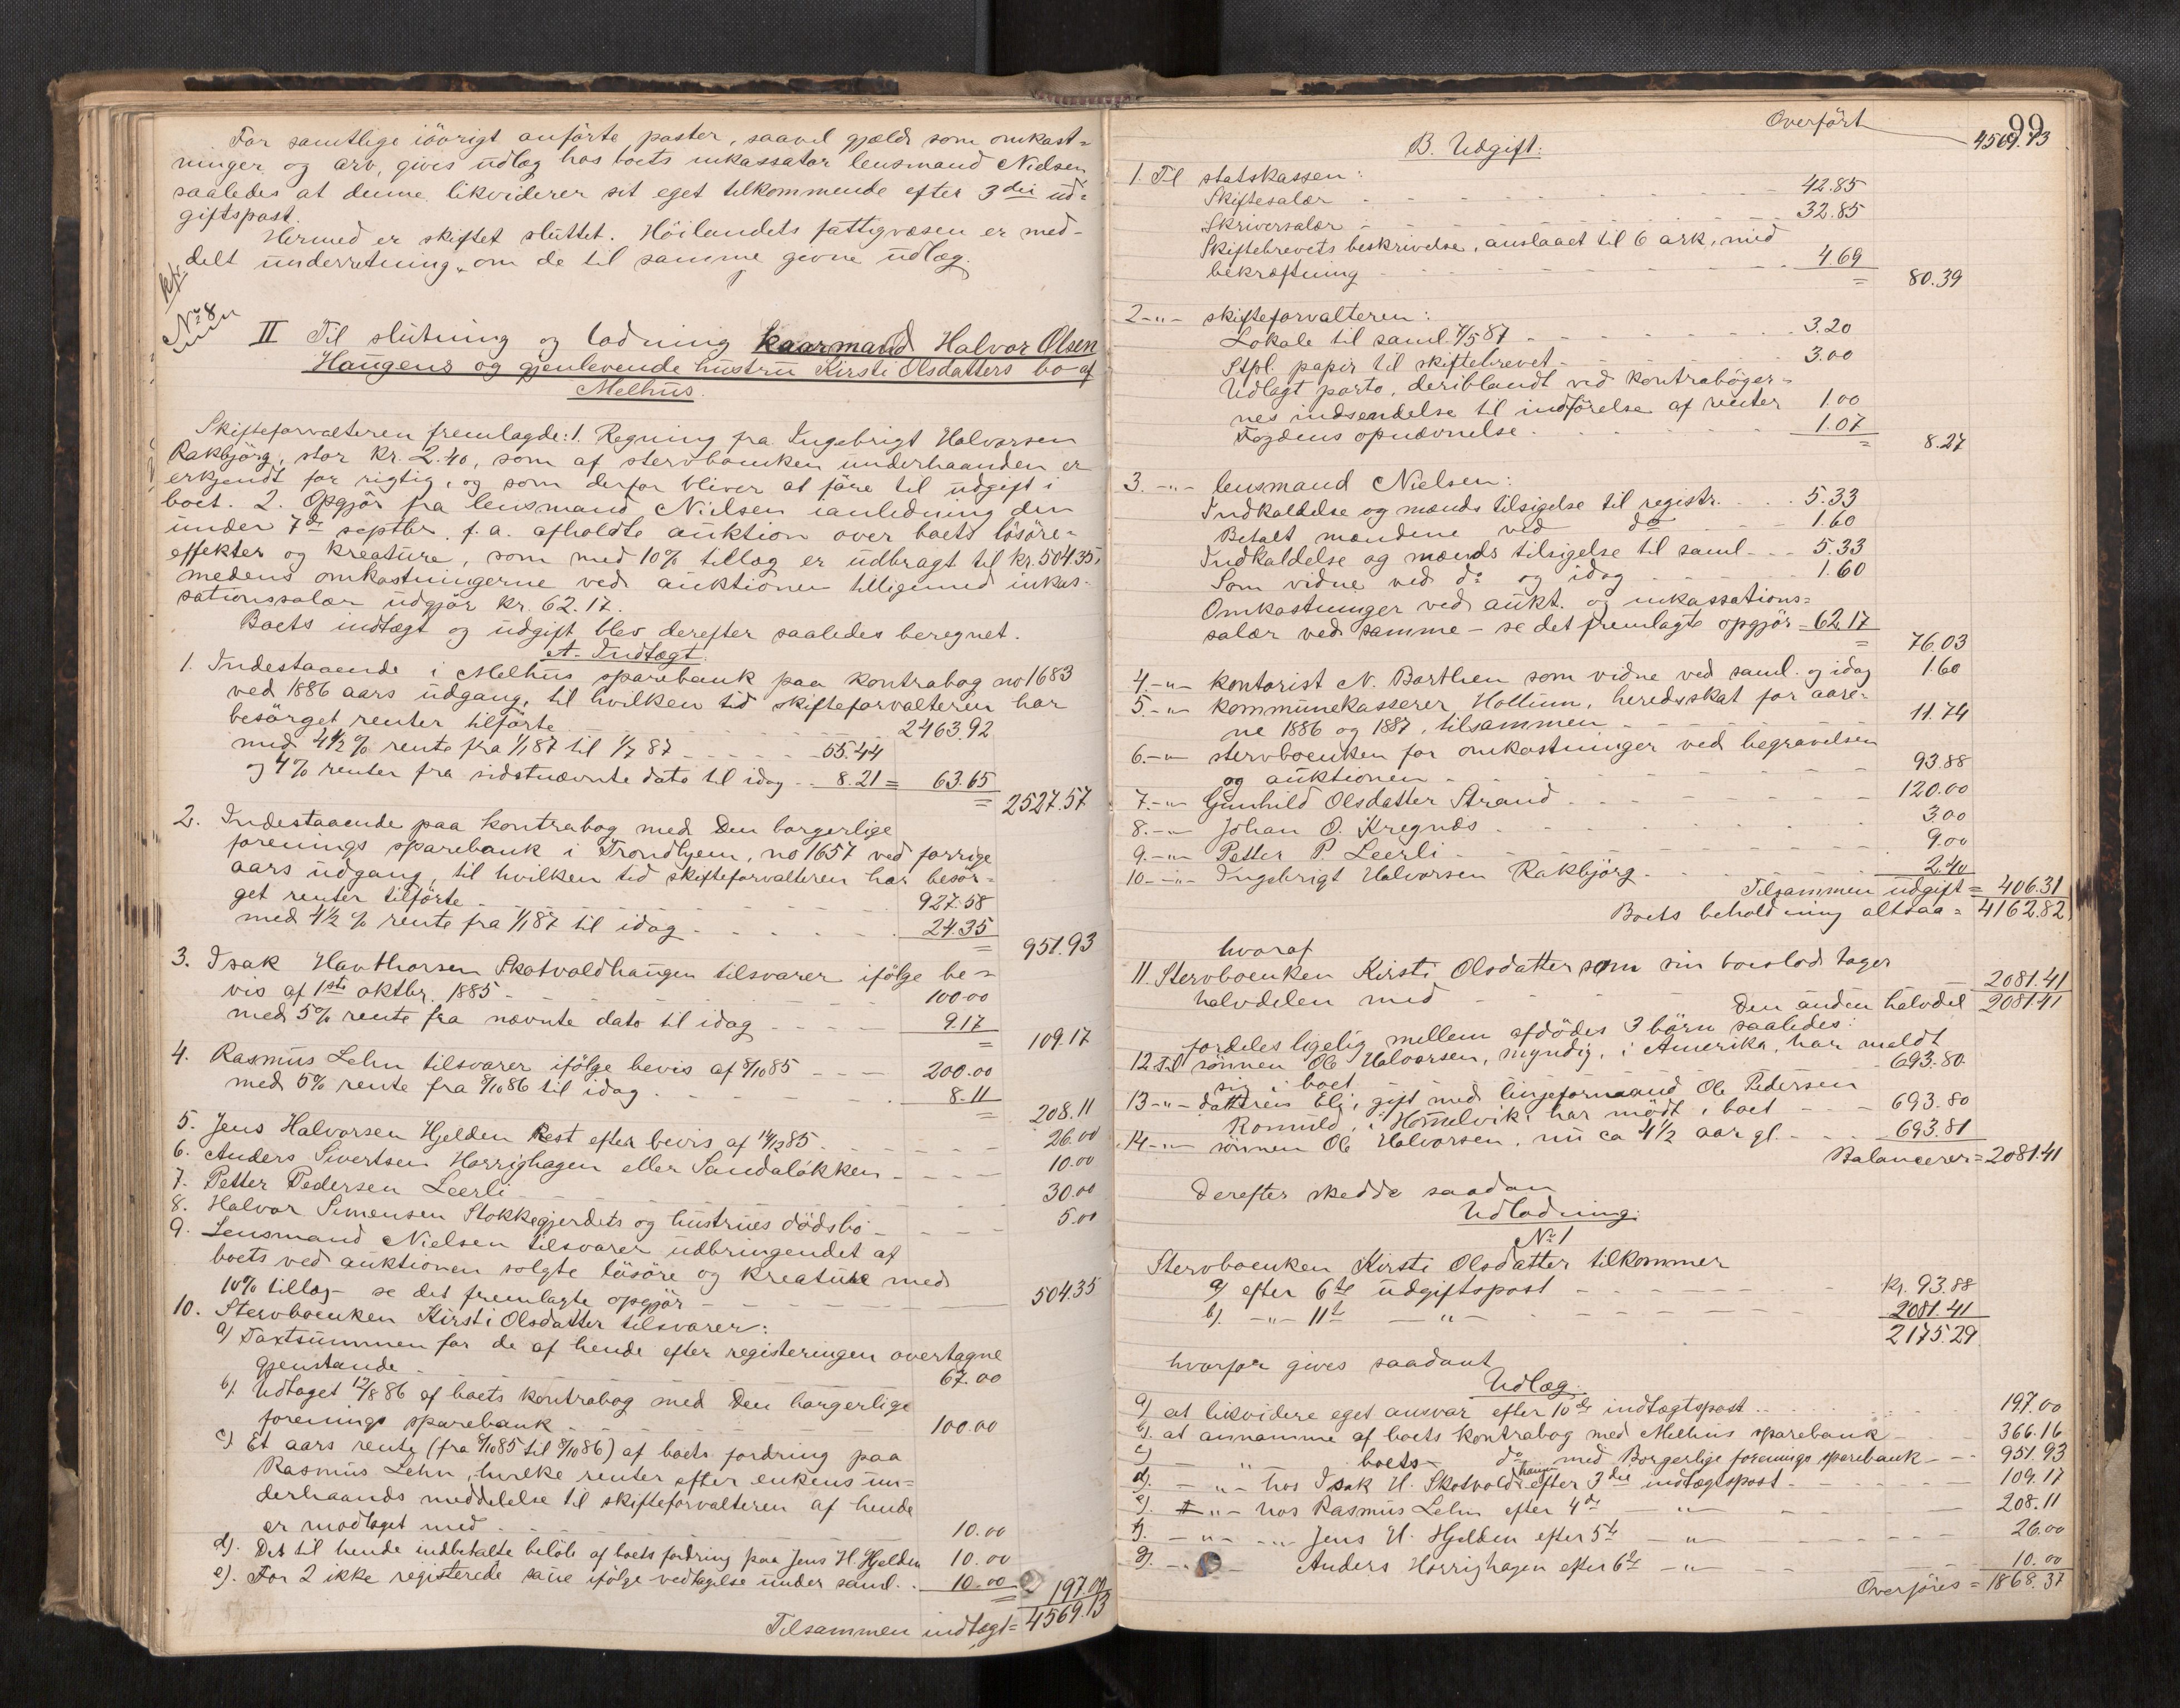 For samtlige iövrigt anförte poster, saavel gjæld som omkast=
ninger og arv, gives udlæg hos boets inkassator lensmand Nielsen
saaledes at denne likviderer sit eget tilkommende efter 3die ud=
giftspost.
Hermed er skiftet sluttet. Höilandets fattigvæsen er med-
delt underretning om de til samme givne udlæg.
No 8
II Til slutning og lodning kaarmand Halvor Olsen
Haugens og gjenlevende hustru Kirsti Olsdatters bo af
Melhus.
Skifteforvalteren fremlagde: 1. Regning fra Ingebrigt Halvorsen
Rakbjörg, stor kr. 2.40, som af stervboenken underhaanden er
erkjendt for rigtig, og som derfor bliver at före til udgift i
boet. 2. Opgjör fra lensmand Nielsen ianledning den
under 7de septbr. f. a. afholdte auktion over boets lösöre=
effekter og kreature, som med 10% tillæg er udbragt til kr. 504.35,
medens omkostningerne ved auktionen tilligemed inkas-
sationssalær udgjör kr. 62.17.
Boets indtægt og udgift blev derefter saaledes beregnet.
A. Indtægt.
1. Indestaaende i Melhus sparebank paa kontrabog no 1683
ved 1886 aars udgang, til hvilken tid skifteforvalteren har
besörget renter tilförte 2463.92
med 4½ % rente fra 1/1 87 til 1/7 87 55.44
og 4% renter fra sidstnævnte dato til idag 8.21 = 63.65
= 2527.57
2. Indestaaende paa kontrabog med Den borgerlige
forenings sparebank i Trondhjem, no 1657 ved forrige
aars udgang, til hvilken tid skifteforvalteren har besör=
get renter tilförte 927.58
med 4½ % rente fra 1/1 87 til idag 24.35
= 951.93
3. Isak Havthorsen Skotvoldhaugen tilsvarer ifölge be=
vis af 1ste oktbr. 1885 100.00
med 5% rente fra nævnte dato til idag 9.17
= 109.17
4. Rasmus Lehn tilsvarer ifölge bevis af 8/10 85 200.00
med 5% rente fra 8/10 86 til idag 8.11
= 208.11
5. Jens Halvorsen Hjelden Rest efter bevis af 14/12 85 26.00
6. Anders Sivertsen Horrighagen eller Sandalökken 10.00
7. Petter Pedersen Leerli 30.00
8. Halvor Simensen Stokkegjerdets og hustrues dödsbo 5.00
9. Lensmand Nielsen tilsvarer udbringendet af
boets ved auktionen solgte lösöre og kreature med
10% tillæg - se det fremlagte opgjör 504.35
10. Stervboenken Kirsti Olsdatter tilsvarer:
a) Taxtsummen for de af hende efter registeringen overtagne
gjenstande 67.00
b). Udtaget 12/8 86 af boets kontrabog med Den borgerlige
forenings sparebank 100.00
c) Et aars rente (fra 8/10 85 til 8/10 86) af boets fordring paa
Rasmus Lehn, hvilke renter efter enkens un=
derhaands meddelelse til skifteforvalteren af hende
er modtaget med 10.00
d). Det til hende indbetalte belöb af boets fordring paa Jens H. Hjelden 10.00
e). For 2 ikke registerede saue ifölge vedtagelse under saml. 10.00
= 197.00
Tilsammen indtægt = 4569.13
99
Overfört 4569.13
B. Udgift:
1. Til statskassen:
Skiftesalær 42.85
Skriversalær 32.85
Skiftebrevets beskrivelse, anslaaet til 6 ark, med
bekræftning 4.69
= 80.39
2 -"- skifteforvalteren:
Lokale til saml. 4/5 87 3.20
Stpl. papir til skiftebrevet 3.00
Udlagt porto, deriblandt ved kontrabøger=
nes indsendelse til indförelse af renter 1.00
Fogdens opnævnelse 1.07
= 8.27
3. -"- lensmand Nielsen:
Indkaldelse og mænds tilsigelse til registr. 5.33
Betalt mændene ved do 1.60
Indkaldelse og mænds tilsigelse til saml. 5.33
Som vidne ved do og idag 1.60
Omkostninger ved aukt. og inkassations=
salær ved samme - se det fremlagte opgjör = 62.17
= 76.03
4. -"- kontorist N. Borthen som vidne ved saml. og idag 1.60
5. -"- kommunekasserer Hollum, heredsskat for aare=
ne 1886 og 1887, tilsammen 11.74
6. -"- stervboenken for omkostninger ved begravelsen
og auktionen 93.88
7. -"- Gunhild Olsdatter Strand 120.00
8. -"- Johan O. Kregnæs 3.00
9. -"- Petter P. Leerli 9.00
10. -"- Ingebrigt Halvorsen Rakbjörg 2.40
Tilsammen udgift = 406.31
Boets beholdning altsaa = 4162.82
hvoraf
11. Stervboenken Kirsti Olsdatter som sin boeslod tager
halvdelen med 2081.41
Den anden halvdel 2081.41
fordeles ligelig mellem afdödes 3 börn saaledes:
12 Til sönnen Ole Halvorsen, myndig, i Amerika, har meldt
sig i boet 693.80
13 -"- datteren Eli, gift med linjeformand Ole Pedersen
Romuld, i Hommelvik har mödt i boet 693.80
14 -"- sönnen Ole Halvorsen, nu ca 4½ aar gl. 693.81
Balancerer = 2081.41
Derefter skedde saadan
Udlodning:
No 1
Stervboenken Kirsti Olsdatter tilkommer
a) efter 6te udgiftspost kr. 93.88
b). -"- 11te -"- 2081.41
2175.29
hvorfor gives saadant
Udlæg:
a) at likvidere eget ansvar efter 10de indtægtspost 197.00
b). at annamme af boets kontrabog med Melhus sparebank 366.16
c) -"- boets do med Borgerlige forenings sparebank 951.93
d). -"- hos Isak H. Skotvoldhaugen efter 3die indtægtspost 109.17
e). -"- hos Rasmus Lehn efter 4de -"- 208.11
f). -"- -"- Jens H. Hjelden efter 5te -"- 26.00
g). -"- Anders Horrighagen efter 6te -"- 10.00
Overföres = 1868.37